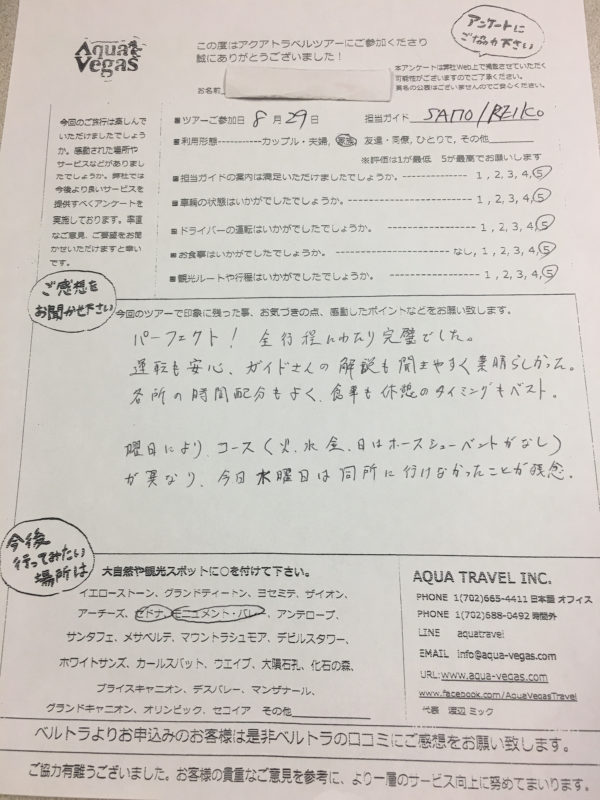 Aqua Vegas
この度はアクアトラベルツアーにご参加くださり
誠にありがとうございました！
アンケートに
ご協力下さい
本アンケートは弊社Web上で掲載させていただく
可能性がございますのでご了承ください。
実名の公表はございませんのでご安心ください。
お名前
■ツアーご参加日 8 月 29 日 担当ガイド SAMO/REIKO
■利用形態------------カップル・夫婦, 家族 友達・同僚, ひとりで, その他
※評価は1が最低 5が最高でお願いします
今回のご旅行は楽しんで
いただけましたでしょう
か。感動された場所や
サービスなどがありまし
たでしょうか。弊社では
今後より良いサービスを
提供すべくアンケートを
実施しております。率直
なご意見、ご要望をお聞
かせいただけますと幸い
です。
■担当ガイドの案内は満足いただけましたでしょうか。--------------- 1, 2, 3, 4, 5
■車輌の状態はいかがでしたでしょうか。--------------- 1, 2, 3, 4, 5
■ドライバーの運転はいかがでしたでしょうか。--------------- 1, 2, 3, 4, 5
■お食事はいかがでしたでしょうか。--------------- なし, 1, 2, 3, 4, 5
■観光ルートや行程はいかがでしたでしょうか。--------------- 1, 2, 3, 4, 5
ご感想を
お聞かせ下さい
今回のツアーで印象に残った事、お気づきの点、感動したポイントなどをお願い致します。
パーフェクト！ 全行程にわたり完璧でした。
運転も安心、ガイドさんの解説も聞きやすく素晴らしかった。
各所の時間配分もよく、食事も休憩のタイミングもベスト。
曜日により、コース（火、水、金、日はホースシューベントがなし）
が異なり、今日水曜日は同所に行けなかったことが残念。
今後
行ってみたい
場所は
大自然や観光スポットに○を付けて下さい。
イエローストーン、グランドティートン、ヨセミテ、ザイオン、
アーチーズ、セドナ、モニュメント・バレー、アンテロープ、
サンタフェ、メサベルテ、マウントラシュモア、デビルスタワー、
ホワイトサンズ、カールスバット、ウエイブ、大隕石孔、化石の森、
ブライスキャニオン、デスバレー、マンザナール、
グランドキャニオン、オリンピック、セコイア その他
AQUA TRAVEL INC.
PHONE 1(702)665-4411 日本語 オフィス
PHONE 1(702)688-0492 時間外
LINE aquatravel
EMAIL info@aqua-vegas.com
URL: www.aqua-vegas.com
www.facebook.com/AquaVegasTravel
代表 渡辺 ミック
ベルトラよりお申込みのお客様は是非ベルトラの口コミにご感想をお願い致します。
ご協力有難うございました。お客様の貴重なご意見を参考に、より一層のサービス向上に努めてまいります。